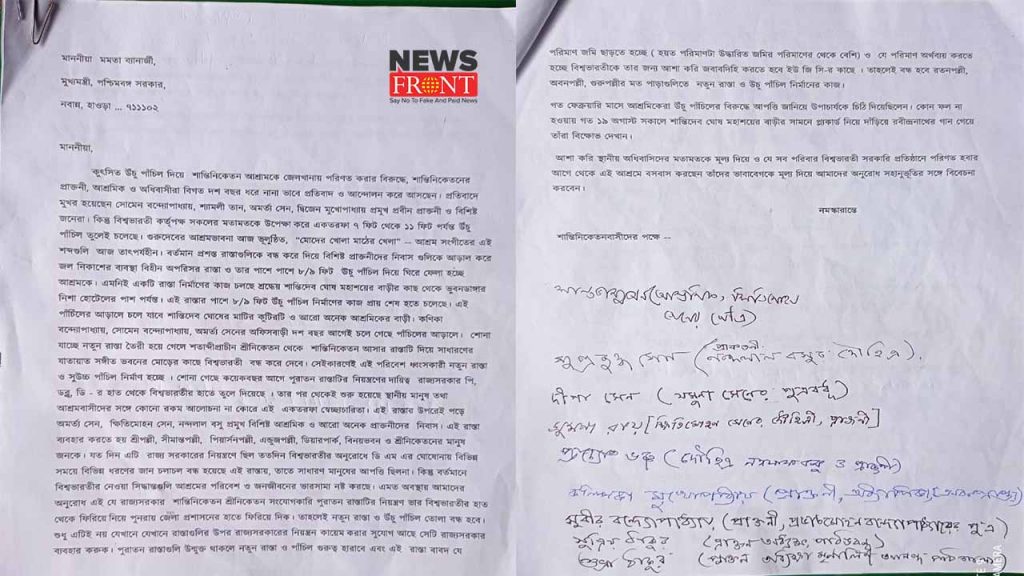 মাননীয়া মমতা ব্যানার্জী,
মুখ্যমন্ত্রী, পশ্চিমবঙ্গ সরকার,
নবান্ন, হাওড়া ... ৭১১১০২
NEWS
FRONT
Say No To Fake And Paid News
মাননীয়া,
কুৎসিত উঁচু পাঁচিল দিয়ে শান্তিনিকেতন আশ্রমকে জেলখানায় পরিণত করার বিরুদ্ধে, শান্তিনিকেতনের
প্রাক্তনী, আশ্রমিক ও অধিবাসীরা বিগত দশ বছর ধরে নানা ভাবে প্রতিবাদ ও আন্দোলন করে আসছেন। প্রতিবাদে
মুখর হয়েছেন সোমেন বন্দ্যোপাধ্যায়, শ্যামলী তান, অমর্ত্য সেন, দ্বিজেন মুখোপাধ্যায় প্রমুখ প্রবীন প্রাক্তনী ও বিশিষ্ট
জনেরা। কিন্তু বিশ্বভারতী কর্তৃপক্ষ সকলের মতামতকে উপেক্ষা করে একতরফা ৭ ফিট থেকে ১১ ফিট পর্যন্ত উঁচু
পাঁচিল তুলেই চলেছে। গুরুদেবের আশ্রমভাবনা আজ ভূলুণ্ঠিত, "মোদের খোলা মাঠের খেলা" -- আশ্রম সংগীতের এই
শব্দগুলি আজ তাৎপর্যহীন। বর্তমান প্রশস্ত রাস্তাগুলিকে বন্ধ করে দিয়ে বিশিষ্ট প্রাক্তনীদের নিবাস গুলিকে আড়াল করে
জল নিকাশের ব্যবস্থা বিহীন অপরিসর রাস্তা ও তার পাশে পাশে ৮/৯ ফিট উঁচু পাঁচিল দিয়ে ঘিরে ফেলা হচ্ছে
আশ্রমকে। এমনিই একটি রাস্তা নির্মাণের কাজ চলছে শ্রদ্ধেয় শান্তিদেব ঘোষ মহাশয়ের বাড়ীর কাছ থেকে ভুবনডাঙ্গার
নিশা হোটেলের পাশ পর্যন্ত। এই রাস্তার পাশে ৮/৯ ফিট উঁচু পাঁচিল নির্মাণের কাজ প্রায় শেষ হতে চলেছে। এই
পাঁচিলের আড়ালে চলে যাবে শান্তিদেব ঘোষের মাটির কুটিরটি ও আরো অনেক আশ্রমিকের বাড়ী। কণিকা
বন্দ্যোপাধ্যায়, সোমেন বন্দ্যোপাধ্যায়, অমর্ত্য সেনের অফিসবাড়ী দশ বছর আগেই চলে গেছে পাঁচিলের আড়ালে। শোনা
যাচ্ছে নতুন রাস্তা তৈরী হয়ে গেলে শতাব্দীপ্রাচীন শ্রীনিকেতন থেকে শান্তিনিকেতন আসার রাস্তাটি দিয়ে সাধারণের
যাতায়াত সঙ্গীত ভবনের মোড়ের কাছে বিশ্বভারতী বন্ধ করে দেবে। সেইকারণেই এই পরিবেশ ধ্বংসকারী নতুন রাস্তা
ও সুউচ্চ পাঁচিল নির্মাণ হচ্ছে । শোনা গেছে কয়েকবছর আগে পুরাতন রাস্তাটির নিয়ন্ত্রণের দায়িত্ব রাজ্যসরকার পি,
ডব্লু, ডি - র হাত থেকে বিশ্বভারতীর হাতে তুলে দিয়েছে । তার পর থেকেই শুরু হয়েছে স্থানীয় মানুষ তথা
আশ্রমবাসীদের সঙ্গে কোনো রকম আলোচনা না কোরে এই একতরফা স্বেচ্ছাচারিতা। এই রাস্তার উপরেই পড়ে
অমর্ত্য সেন, ক্ষিতিমোহন সেন, নন্দলাল বসু প্রমুখ বিশিষ্ট আশ্রমিক ও আরো অনেক প্রাক্তনীদের নিবাস। এই রাস্তা
ব্যবহার করতে হয় শ্রীপল্লী, সীমান্তপল্লী, পিয়ার্সনপল্লী, এন্ড্রুজপল্লী, ডিয়ারপার্ক, বিনয়ভবন ও শ্রীনিকেতনের মানুষ
জনকে। যত দিন এটি রাজ্য সরকারের নিয়ন্ত্রণে ছিল ততদিন বিশ্বভারতীর অনুরোধে ডি এম এর ঘোষোনায় বিভিন্ন
সময়ে বিভিন্ন ধরণের যান চলাচল বন্ধ হয়েছে এই রাস্তায়, তাতে সাধারণ মানুষের আপত্তি ছিলনা। কিন্তু বর্তমানে
বিশ্বভারতীর নেওয়া সিদ্ধান্তগুলি আশ্রমের পরিবেশ ও জনজীবনের ভারসাম্য নষ্ট করছে। এমত অবস্থায় আমাদের
অনুরোধ এই যে রাজ্যসরকার শান্তিনিকেতন শ্রীনিকেতন সংযোগকারি পুরাতন রাস্তাটির নিয়ন্ত্রণ ভার বিশ্বভারতীর হাত
থেকে ফিরিয়ে নিয়ে পুনরায় জেলা প্রশাসনের হাতে ফিরিয়ে দিক। তাহলেই নতুন রাস্তা ও উঁচু পাঁচিল তোলা বন্ধ হবে।
শুধু এটিই নয় যেখানে যেখানে রাস্তাগুলির উপর রাজ্যসরকারের নিয়ন্ত্রন কায়েম করার সুযোগ আছে সেটি রাজ্যসরকার
ব্যবহার করুক। পুরাতন রাস্তাগুলি উন্মুক্ত থাকলে নতুন রাস্তা ও পাঁচিল গুরুত্ব হারাবে এবং এই রাস্তা বাবদ যে
পরিমাণ জমি ছাড়তে হচ্ছে ( হয়ত পরিমাণটা উদ্ধারিত জমির পরিমাণের থেকে বেশি) ও যে পরিমাণ অর্থব্যয় করতে
হচ্ছে বিশ্বভারতীকে তার জন্য আশা করি জবাবদিহি করতে হবে ইউ জি সি-র কাছে । তাহলেই বন্ধ হবে রতনপল্লী,
অবনপল্লী, গুরুপল্লীর মত পাড়াগুলিতে নতুন রাস্তা ও উঁচু পাঁচিল নির্মানের কাজ।
গত ফেব্রুয়ারি মাসে আশ্রমিকেরা উঁচু পাঁচিলের বিরুদ্ধে আপত্তি জানিয়ে উপাচার্যকে চিঠি দিয়েছিলেন। কোন ফল না
হওয়ায় গত ১৯ অগাস্ট সকালে শান্তিদেব ঘোষ মহাশয়ের বাড়ীর সামনে প্ল্যাকার্ড নিয়ে দাঁড়িয়ে রবীন্দ্রনাথের গান গেয়ে
তাঁরা বিক্ষোভ দেখান।
আশা করি স্থানীয় অধিবাসিদের মতামতকে মূল্য দিয়ে ও যে সব পরিবার বিশ্বভারতী সরকারি প্রতিষ্ঠানে পরিণত হবার
আগে থেকে এই আশ্রমে বসবাস করছেন তাঁদের ভাবাবেগকে মূল্য দিয়ে আমাদের অনুরোধ সহানুভূতির সঙ্গে বিবেচনা
করবেন।
নমস্কারান্তে
শান্তিনিকেতনবাসীদের পক্ষে --
সেনের পৌত্র)
(প্রাক্তনী,
সুপ্রবুদ্ধ সেন নন্দলাল বসুর দৌহিত্র).
দীপা সেন (যমুনা সেনের পুত্রবধূ)
রায় [ক্ষিতিমোহন সেনের দৌহিত্রী, প্রাক্তনী]
ভঞ্জ (দৌহিত্র নন্দলাল বসু ও প্রাক্তনী)
মুখোপাধ্যায় (প্রাক্তনী,
সুবীর বন্দ্যোপাধ্যায় (প্রাক্তনী, পুত্র)
সুপ্রিয় ঠাকুর (প্রাক্তন অধ্যক্ষ পাঠভবন)
শুভ্রা ঠাকুর (প্রাক্তন